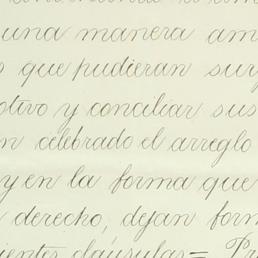 una manera am
s que pudieran sur
otivo y conciliar sus
n celebrado el arreglo
y en la forma que
derecho, dejan form
ientes cláusulas = Pr